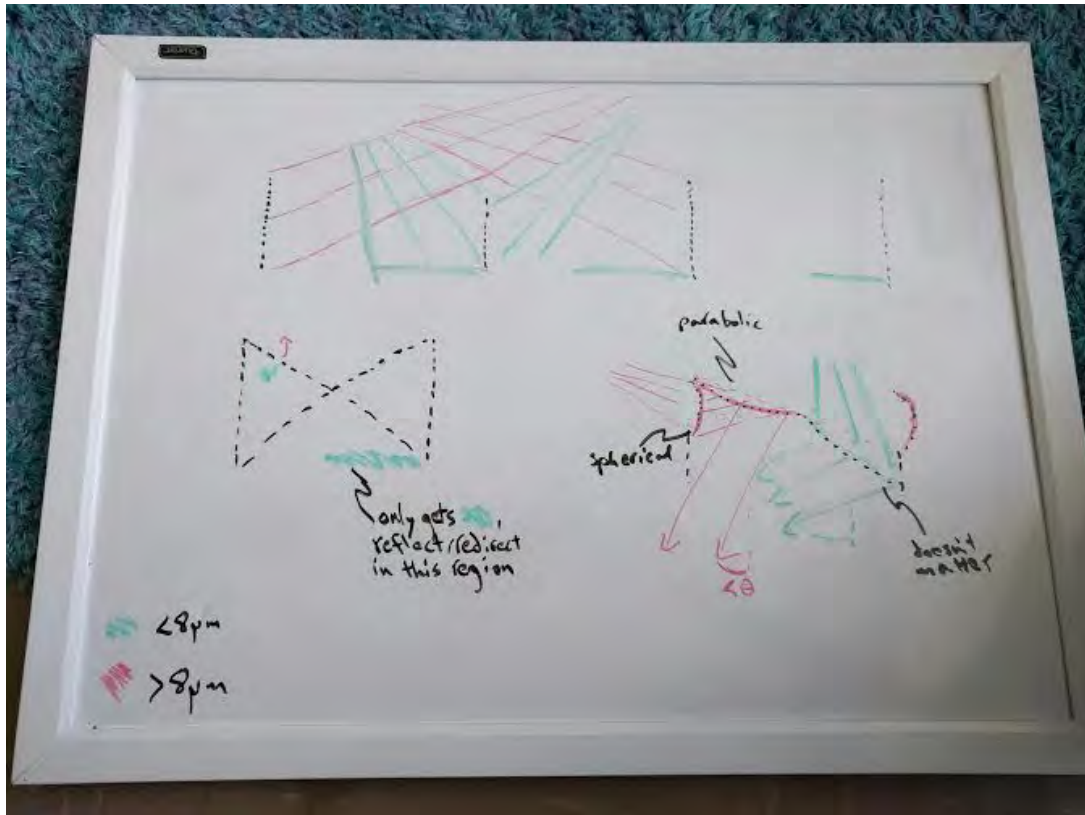 Quartet
parabolic
spherical
only gets ,
reflect/redirect
in this region
doesn't
matter
<θ
<8μm
>8μm